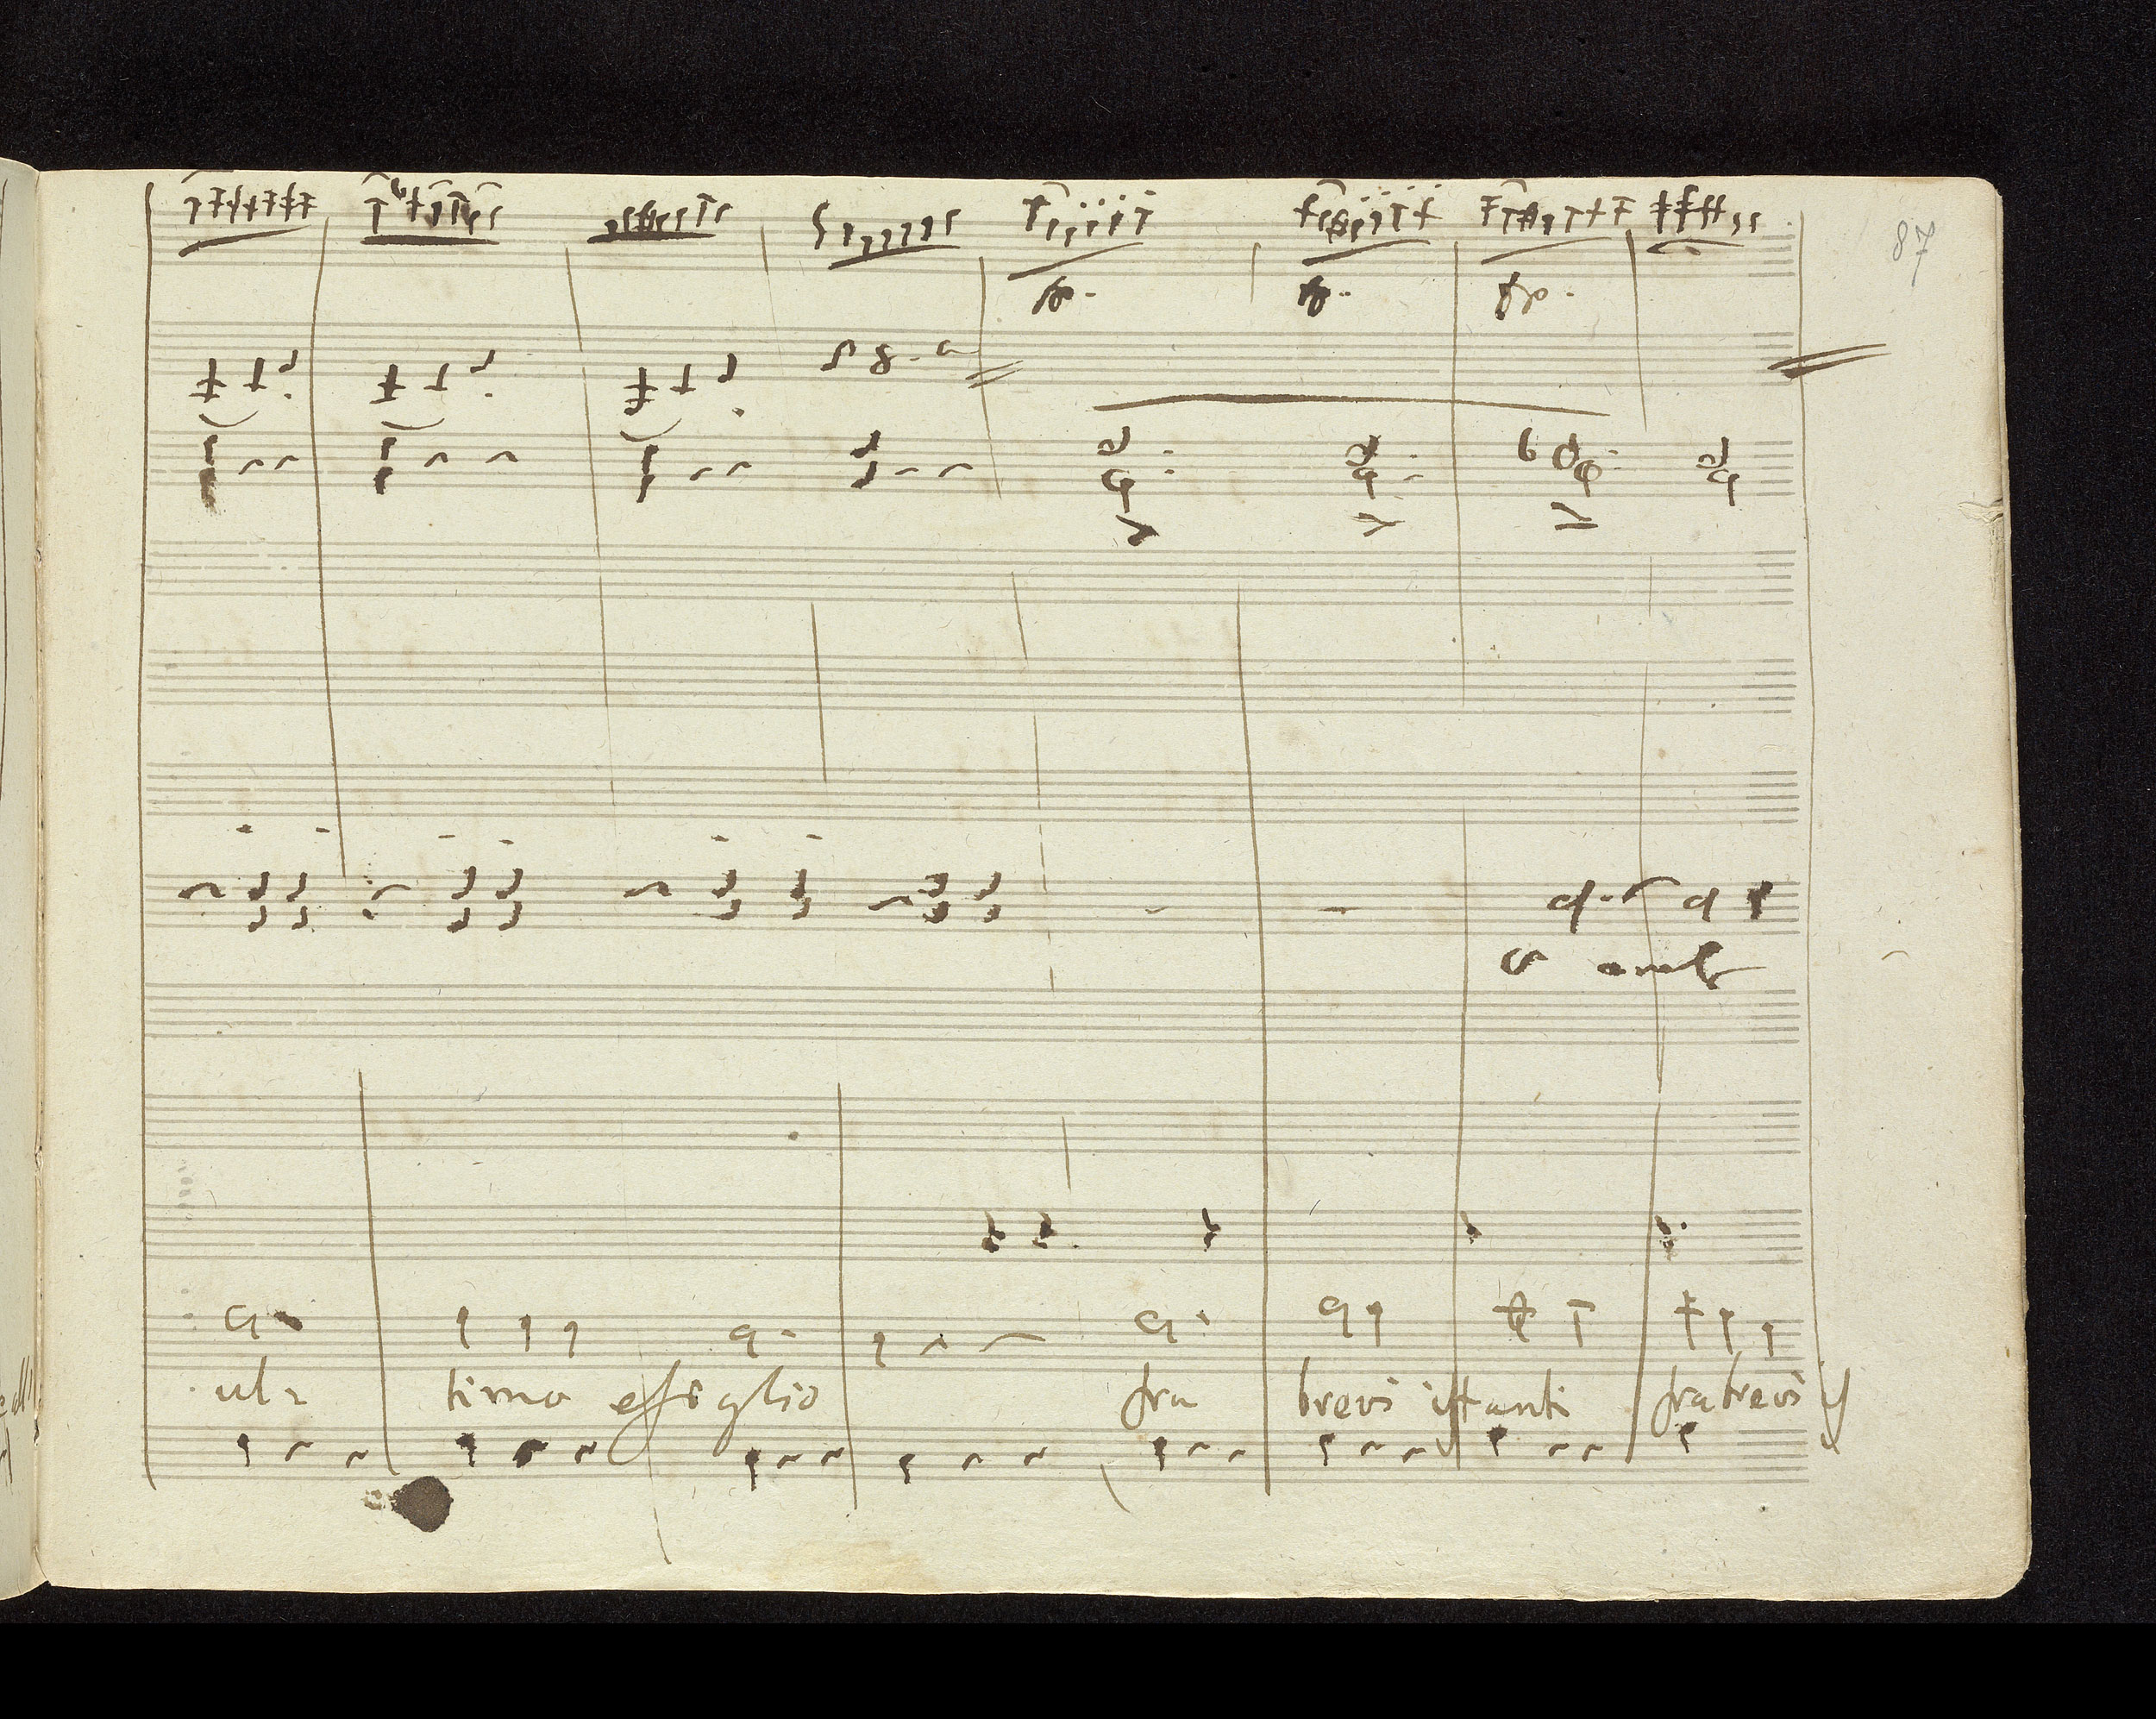 87
fp.
fp.
fp.
8.a
ul= timo essiglio fra brevi istanti fra brevi